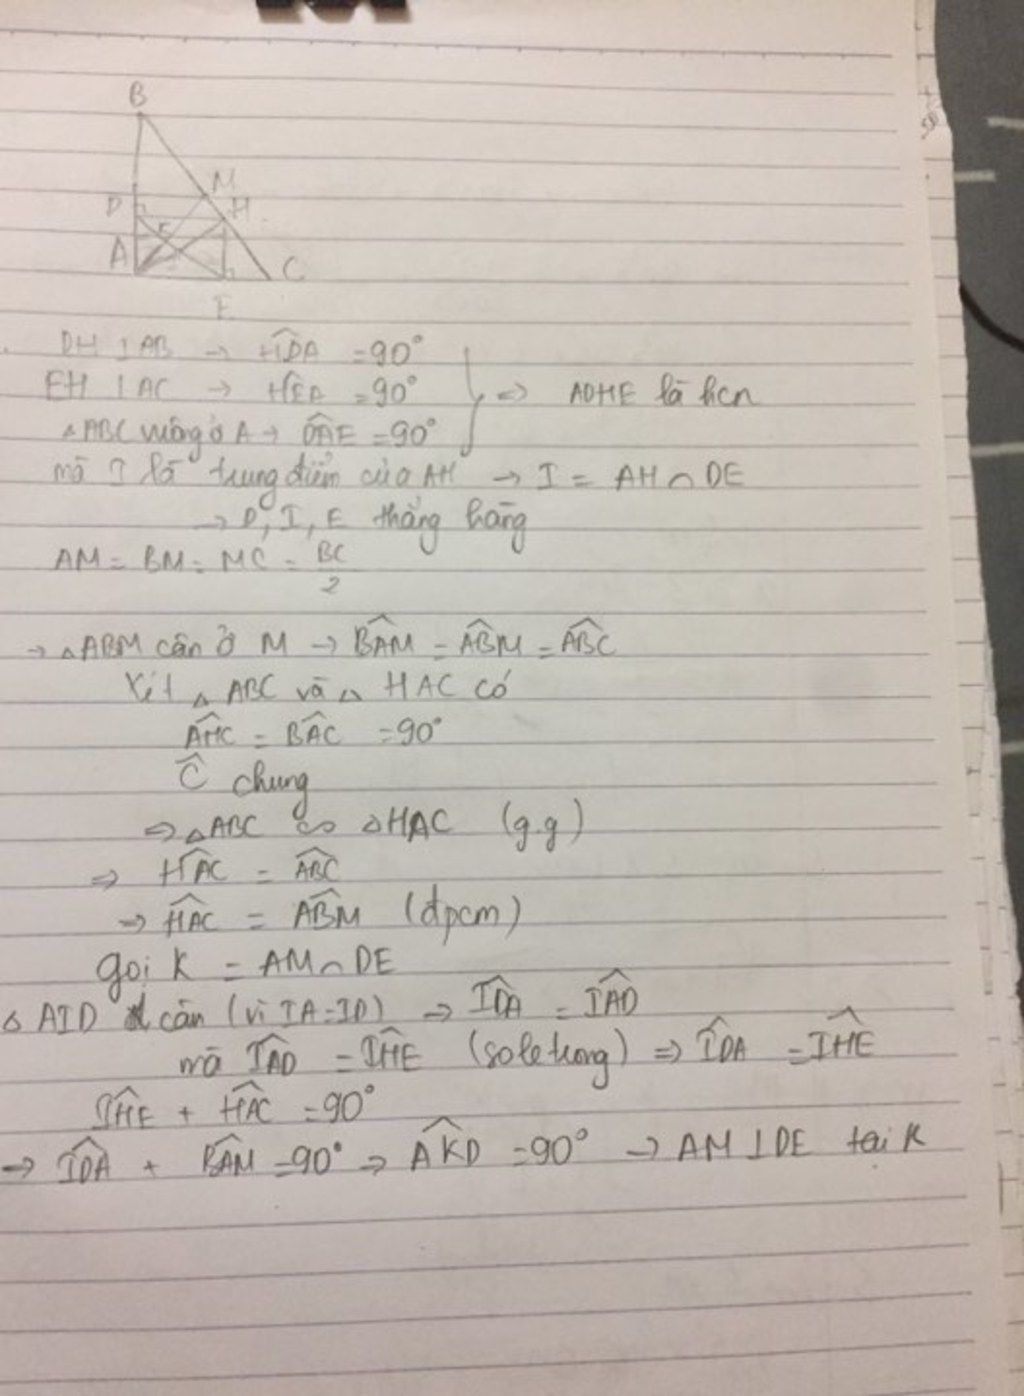 B
M
D
H
A
C
E
DH ⊥ AB → \widehat{HDA} = 90°
EH ⊥ AC → \widehat{HEA} = 90° ⇒ ADHE là hcn
△ABC vuông ở A → \widehat{DAE} = 90°
mà I là trung điểm của AH → I = AH ∩ DE
→ D, I, E thẳng hàng
AM = BM = MC = \frac{BC}{2}
→ △ABM cân ở M → \widehat{BAM} = \widehat{ABM} = \widehat{ABC}
Xét △ ABC và △ HAC có
\widehat{AHC} = \widehat{BAC} = 90°
\widehat{C} chung
⇒ △ABC ∽ △HAC (g.g)
⇒ \widehat{HAC} = \widehat{ABC}
→ \widehat{HAC} = \widehat{ABM} (đpcm)
gọi K = AM ∩ DE
△ AID cân (vì IA = ID) → \widehat{IDA} = \widehat{IAD}
mà \widehat{IAD} = \widehat{IHE} (so le trong) ⇒ \widehat{IDA} = \widehat{IHE}
\widehat{IHE} + \widehat{HAC} = 90°
→ \widehat{IDA} + \widehat{BAM} = 90° → \widehat{AKD} = 90° → AM ⊥ DE tại K